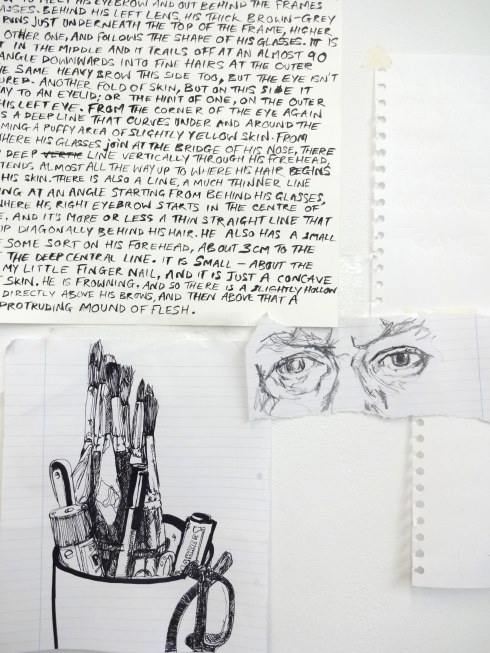 TO MEET HIS EYEBROW AND OUT BEHIND THE FRAMES
ASSES. BEHIND HIS LEFT LENS, HIS THICK BROWN-GREY
RUNS JUST UNDERNEATH THE TOP OF THE FRAME, HIGHER
OTHER ONE, AND FOLLOWS THE SHAPE OF HIS GLASSES. IT IS
T IN THE MIDDLE AND IT TRAILS OFF AT AN ALMOST 90
ANGLE DOWNWARDS INTO FINE HAIRS AT THE OUTER
HE SAME HEAVY BROW THIS SIDE TOO, BUT THE EYE ISN'T
URED. ANOTHER FOLD OF SKIN, BUT ON THIS SIDE IT
AY TO AN EYELID; OR THE HINT OF ONE, ON THE OUTER
HIS LEFT EYE. FROM THE CORNER OF THE EYE AGAIN
S A DEEP LINE THAT CURVES UNDER AND AROUND THE
MING A PUFFY AREA OF SLIGHTLY YELLOW SKIN. FROM
HERE HIS GLASSES JOIN AT THE BRIDGE OF HIS NOSE, THERE
DEEP VERTIC LINE VERTICALLY THROUGH HIS FOREHEAD,
TENDS ALMOST ALL THE WAY UP TO WHERE HIS HAIR BEGINS
HIS SKIN. THERE IS ALSO A LINE, A MUCH THINNER LINE
NG AT AN ANGLE STARTING FROM BEHIND HIS GLASSES
WHERE HIS RIGHT EYEBROW STARTS IN THE CENTRE OF
E, AND IT'S MORE OR LESS A THIN STRAIGHT LINE THAT
UP DIAGONALLY BEHIND HIS HAIR. HE ALSO HAS A SMALL
SOME SORT ON HIS FOREHEAD, ABOUT 3CM TO THE
THE DEEP CENTRAL LINE. IT IS SMALL – ABOUT THE
MY LITTLE FINGER NAIL, AND IT IS JUST A CONCAVE
SKIN. HE IS FROWNING, AND SO THERE IS A SLIGHTLY HOLLOW
DIRECTLY ABOVE HIS BROWS, AND THEN ABOVE THAT A
PROTRUDING MOUND OF FLESH.